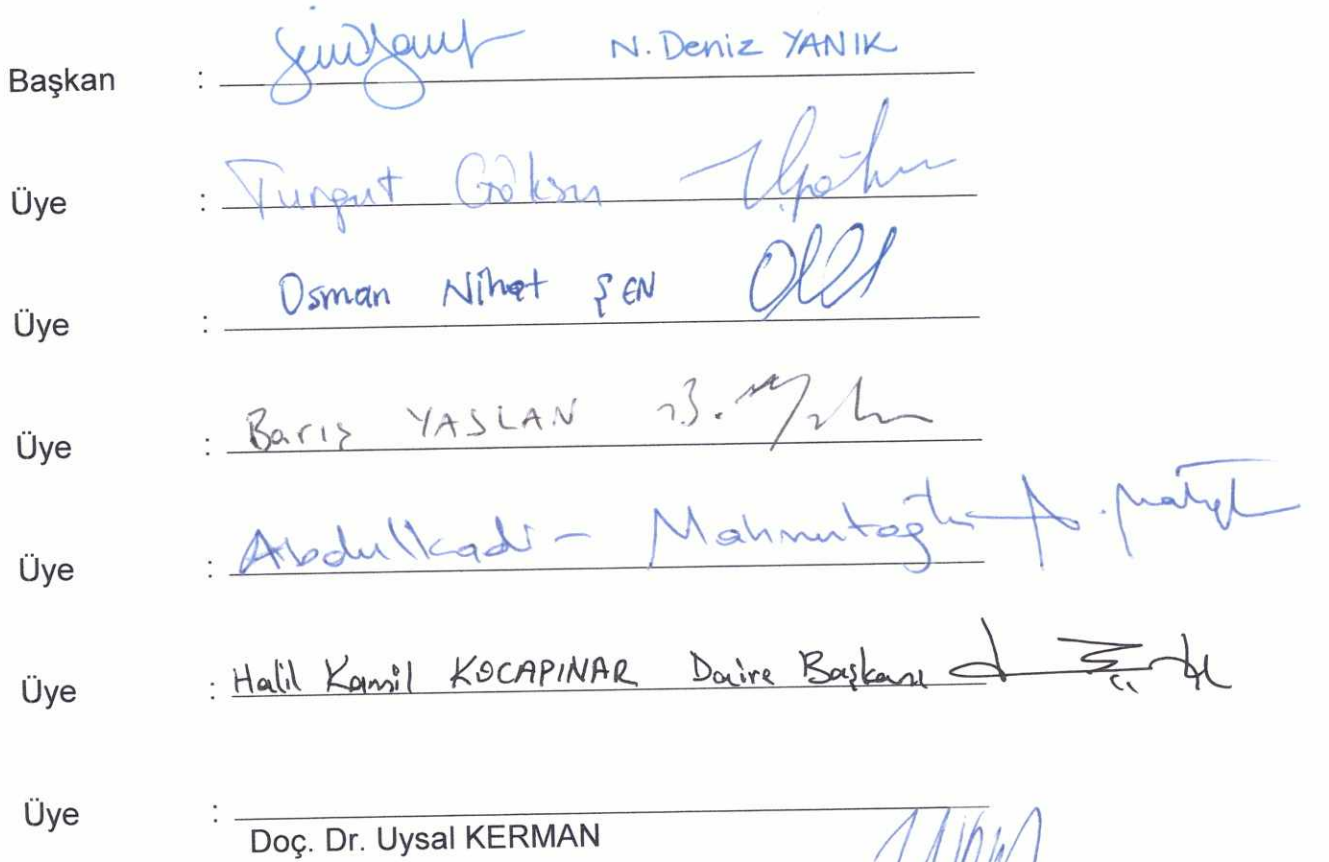 Başkan : N. Deniz YANIK
Üye : Turgut Göksu
Üye : Osman Nihat ŞEN
Üye : Barış YASLAN
Üye : Abdulkadir Mahmutoğlu
Üye : Halil Kamil KOCAPINAR Daire Başkanı
Üye :
Doç. Dr. Uysal KERMAN